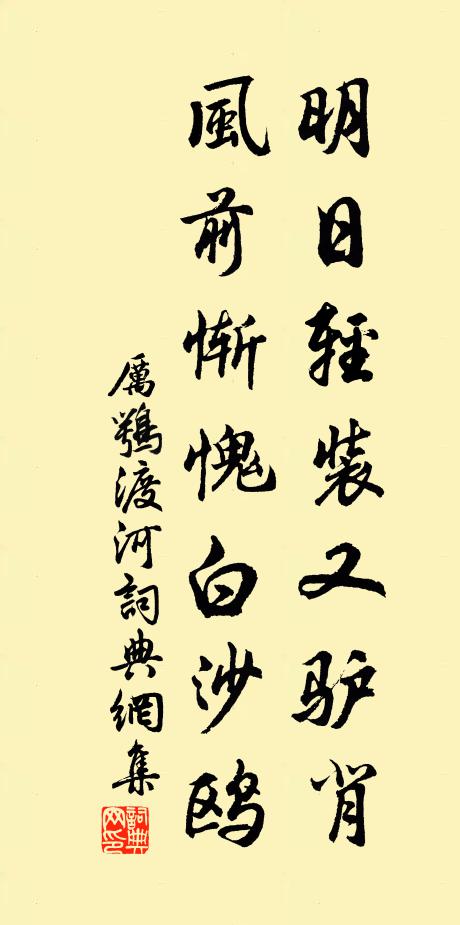 明日輕裝又驴背
風前慚愧白沙鸥
厲鶚渡河詞典網集
詞典网印